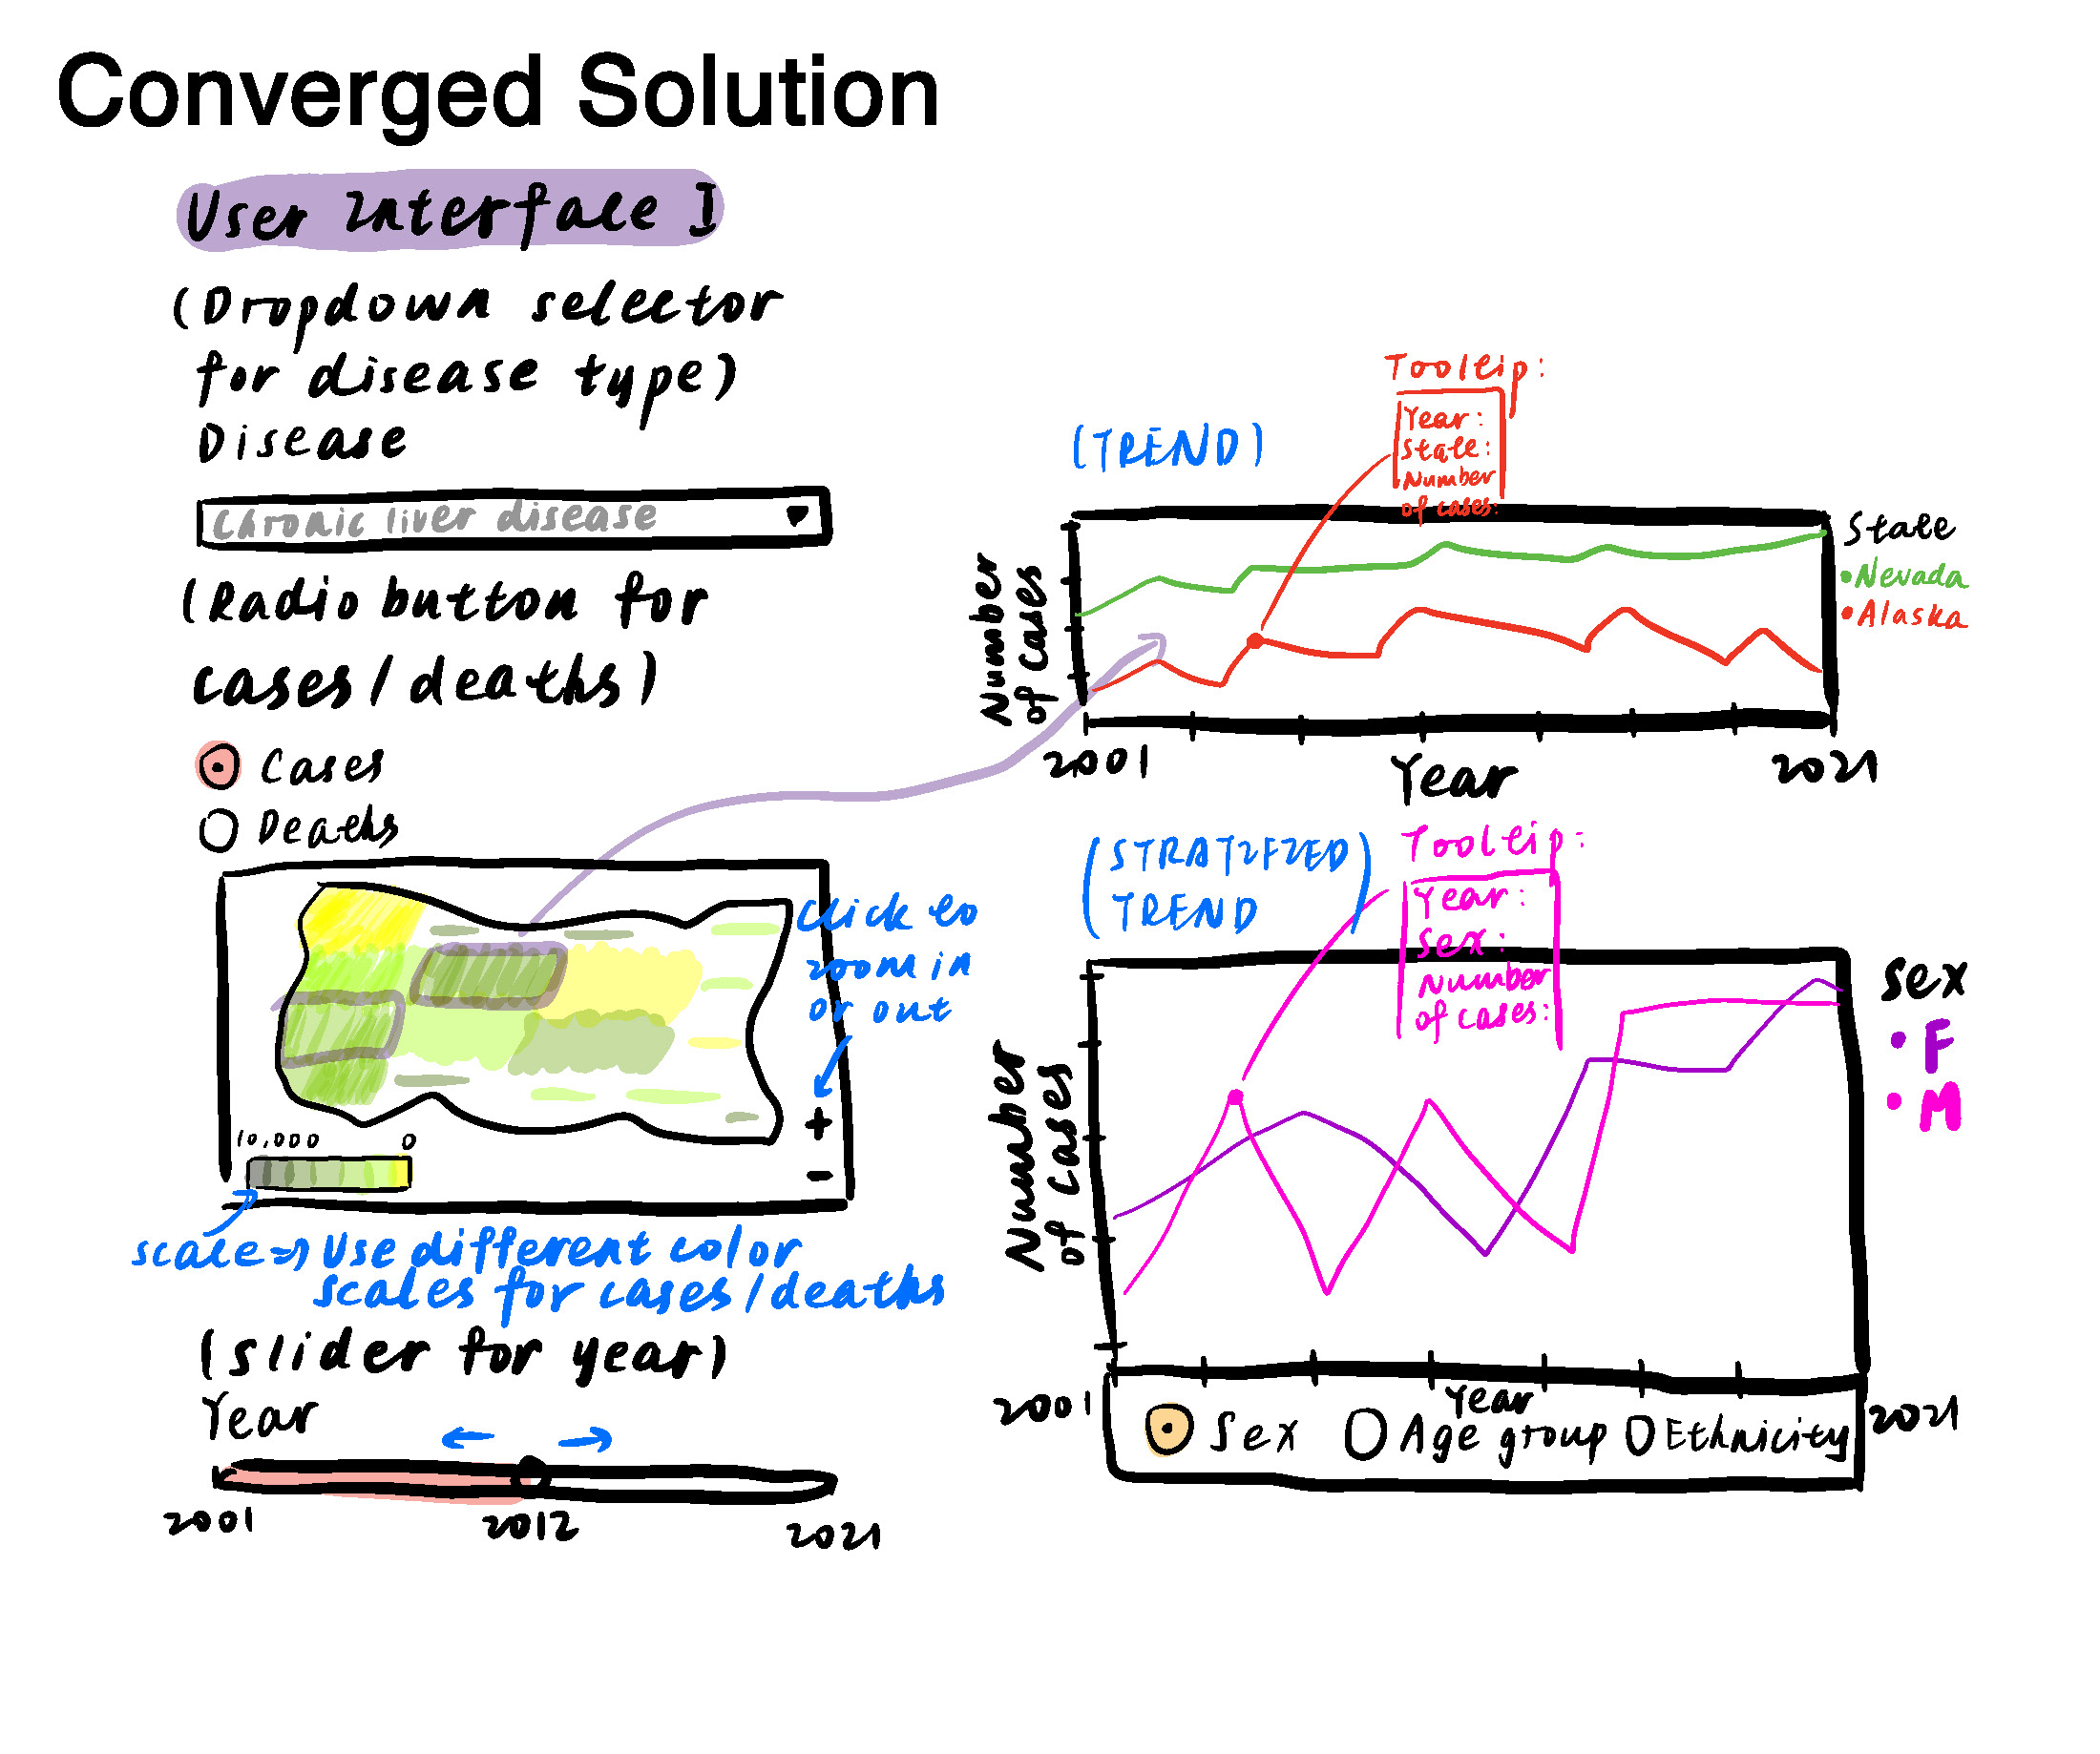 Converged Solution
User Interface I
(Dropdown selector
for disease type)
Disease
Chronic liver disease
(Radio button for
cases/deaths)
Cases
Deaths
Click to
zoom in
or out
+
-
10,000 0
scale => Use different color
scales for cases/deaths
(slider for year)
Year
2001 2012 2021
(TREND)
Tooltip:
Year:
State:
Number
of cases:
State
Nevada
Alaska
Number
of cases
2001 Year 2021
(STRATIFIED
TREND)
Tooltip:
Year:
Sex:
Number
of cases:
Sex
F
M
Number
of cases
2001 Year 2021
Sex Age group Ethnicity